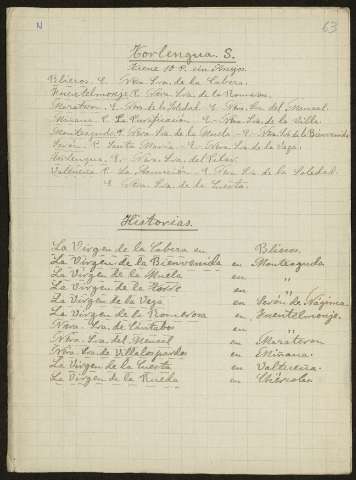 N
63
Torlengua. S.
Tiene 10 P. sin Anejos.
Bliecos. E. Ntra. Sra. de la Cabeza.
Fuentelmonge. E. Ntra. Sra. de la Romerosa.
Mazateron. E. Ntra. de la Soledad. E. Ntra. Sra. del Monseal.
Miñana. P. La Purificación. E. Ntra. Sra. de la Villa.
Monteagudo. E. Ntra. Sra. de la Muela. E. Ntra. Sra. de la Bienvenida
Serón. P. Santa María. E. Ntra. Sra. de la Vega.
Torlengua. E. Ntra. Sra. del Pilar.
Valtueña. P. La Asunción. E. Ntra. Sra. de la Soledad.
E. Ntra. Sra. de la Cuesta.
Historias.
La Virgen de la Cabeza en Bliecos.
La Virgen de la Bienvenida en Monteagudo
La Virgen de la Muela en "
La Virgen de la en "
La Virgen de la Vega en Serón de Nágima.
La Virgen de la Romerosa en Fuentelmonge.
Ntra. Sra. de Cántabos en "
Ntra. Sra. del en Mazateron
Ntra. Sra. de Villalospardos en Miñana.
La Virgen de la Cuesta en Valtueña.
La Virgen de la Rueda en Chércoles